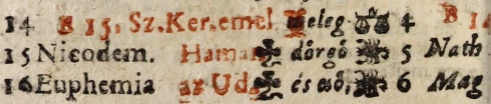 14 B 15. Sz. Ker. emel meleg 4 B 14
15 Nicodem. Hamar dörgö 5 Nath
16 Euphemia az Ud és esö, 6 Mag